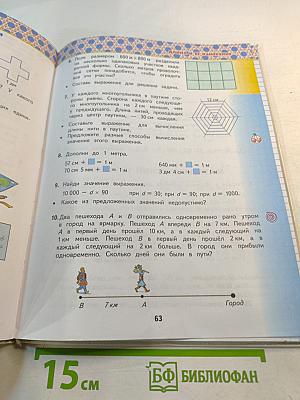 6. Поле размером 690 м × 890 м разделили
на несколько одинаковых участков квад-
ратной формы. Сколько метров проволоч-
ной сетки понадобится, чтобы оградить
все эти участки?
• Составьте выражение для решения задачи.
7. У каждого многоугольника в паутине сто-
роны равны. Сторона каждого следующе-
го многоугольника на 2 см меньше, чем
у предыдущего. Длина нитей, проходящих
через центр паутины, — 30 см каждая.
12 см
• Составьте выражение для вычисления
длины нити в паутине.
• Предложите разные способы вычисления
значения этого выражения.
8. Дополни до 1 метра.
57 см + = 1 м
640 мм + = 1 м
70 см 5 мм + = 1 м
3 дм 4 см + = 1 м
9. Найди значение выражения.
10 000 — d × 90 при d = 30; при d = 90; при d = 1000.
• Какое из предложенных значений недопустимо?
10. Два пешехода A и B отправились одновременно рано утром
в город на ярмарку. Пешеход A впереди B на 7 км. Пешеход
A в первый день прошёл 10 км, а в каждый следующий на
1 км меньше. Пешеход B в первый день прошёл 2 км, а в
каждый следующий на 2 км больше. В город они прибыли
одновременно. Сколько дней они были в пути?
B 7 км A Город
63
15 см
БФ БИБЛИОФАН